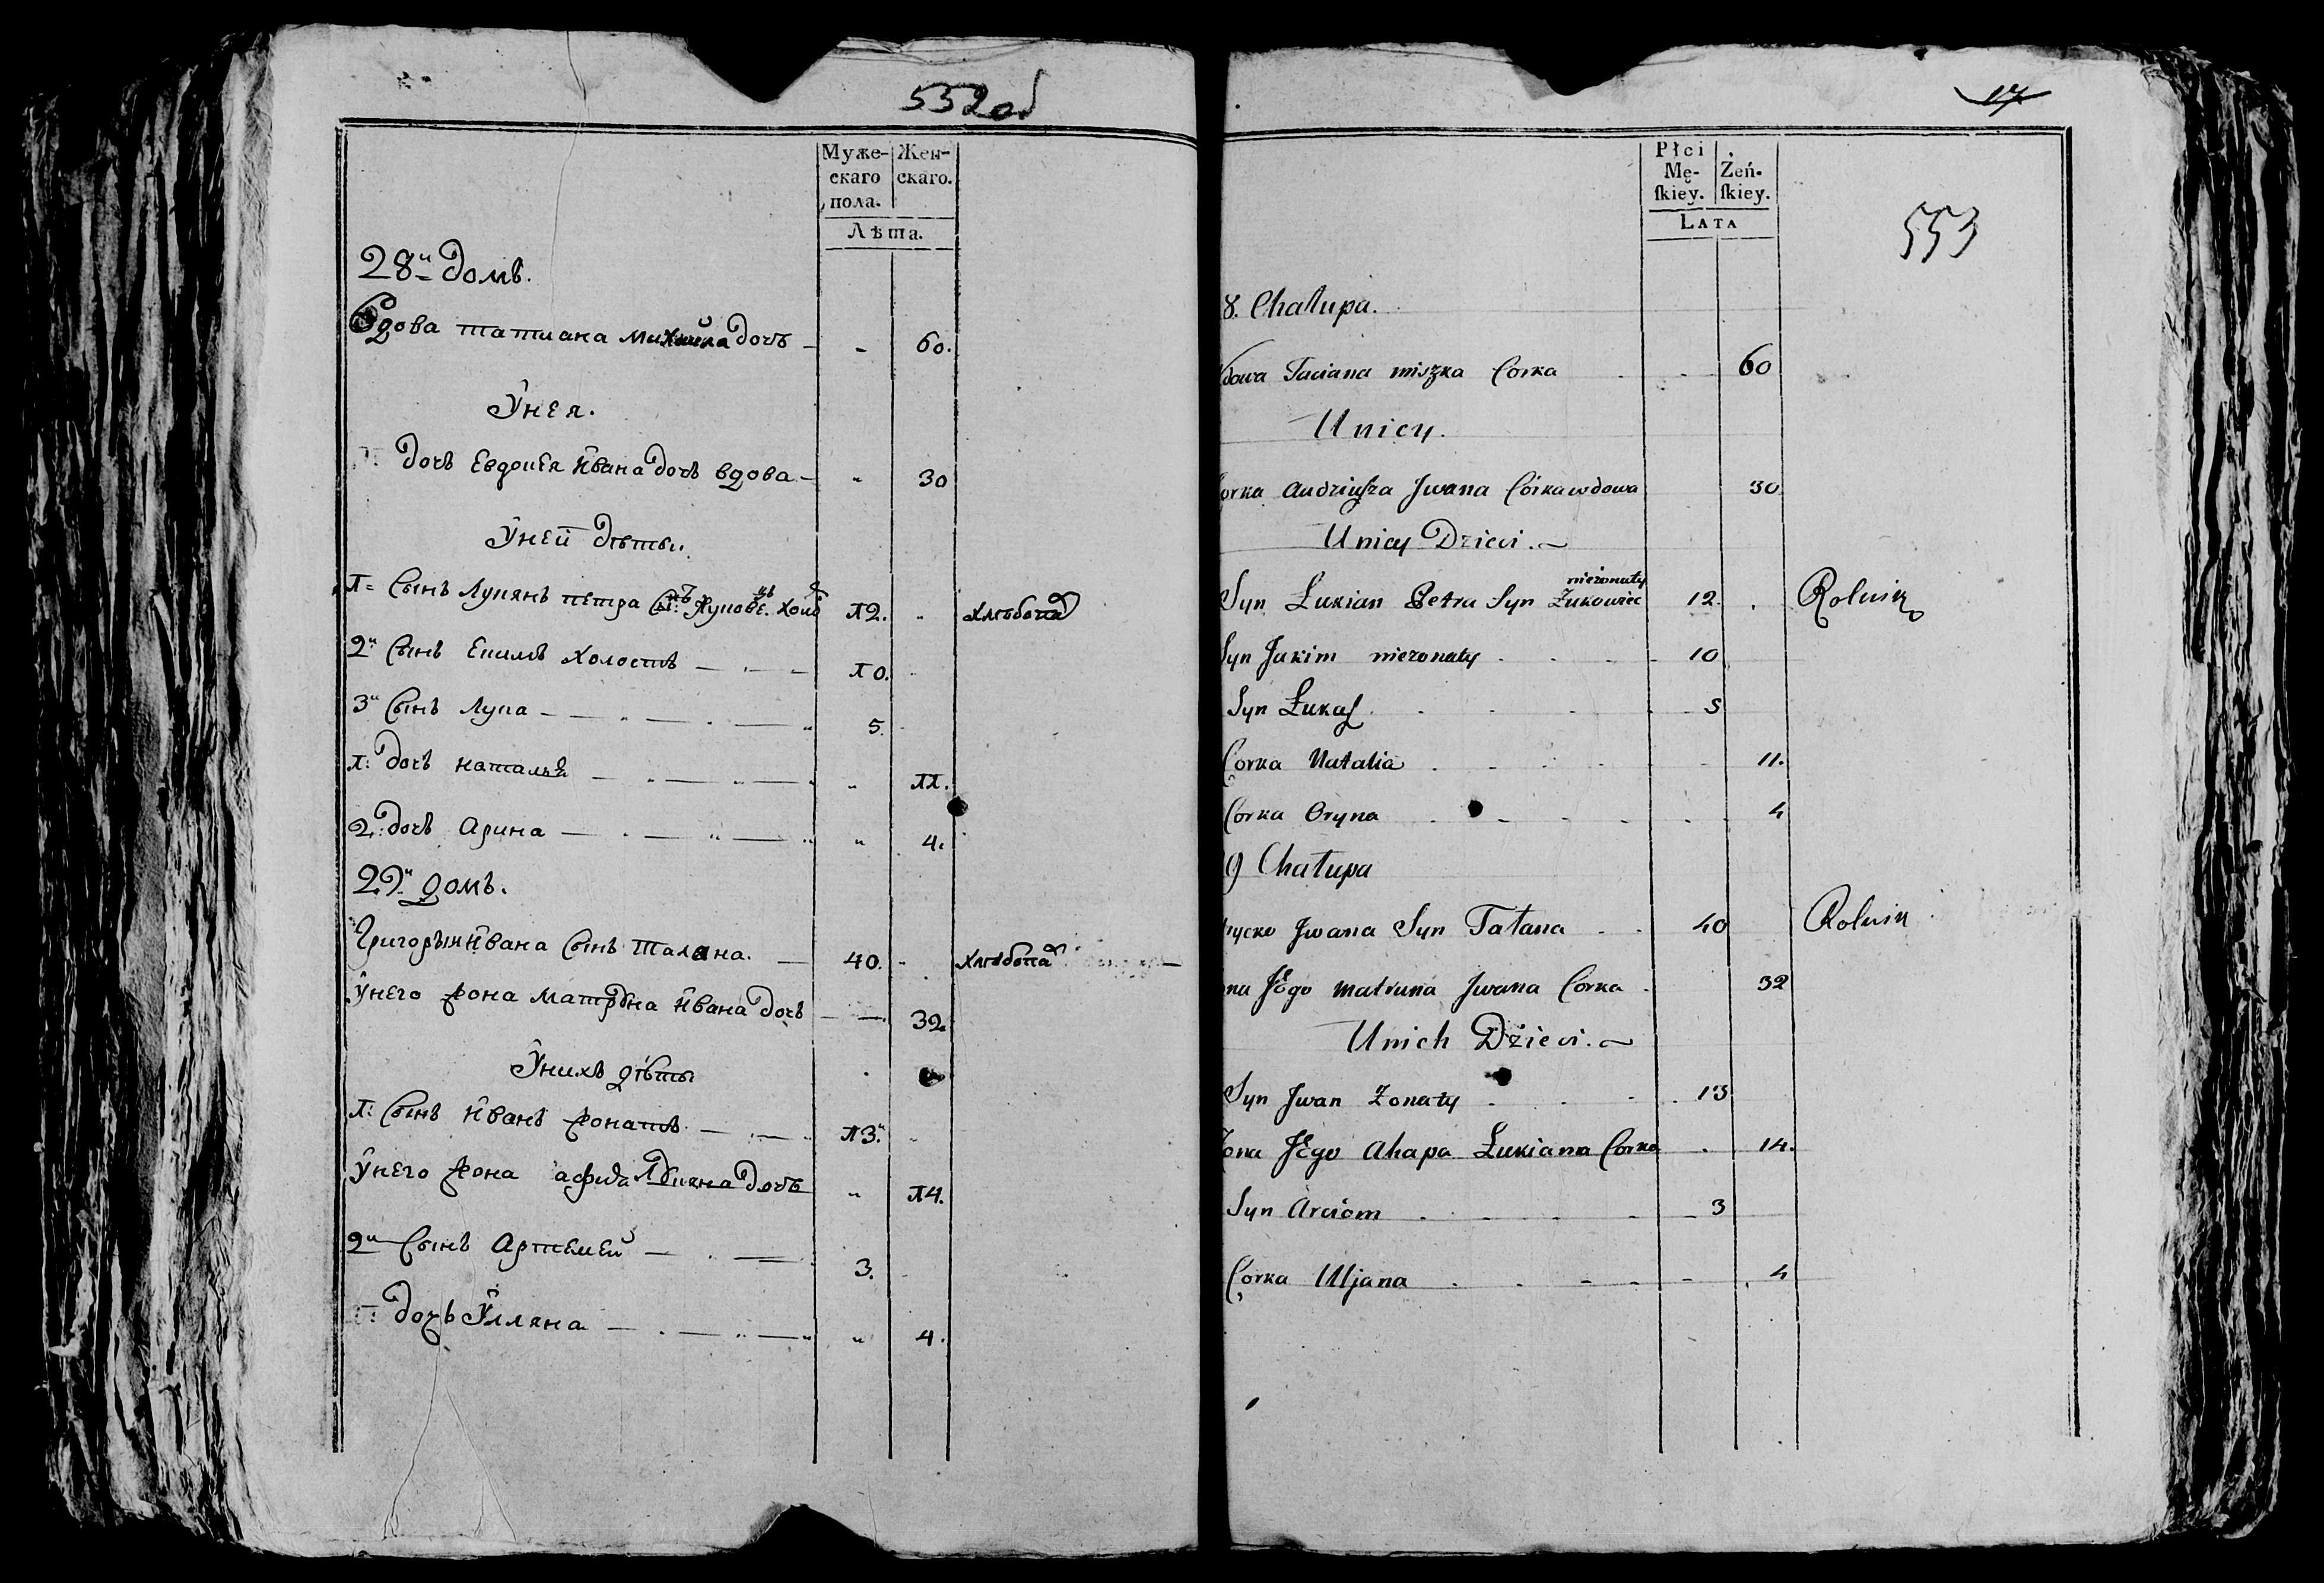 552об
Муже-
скаго
пола.
Жен-
скаго.
Лѣта.
28й домъ.
Вдова татиана михайла дочь 60.
Ўнея.
дочь Евдокея йвана дочь вдова 30
Ўней дѣты.
1 Сынъ Лукянъ петра 12. хлѣбопа
2й Сынъ Екимъ холостъ 10.
3й Сынъ Лука 5.
1: дочь наталья 11.
2: дочь Арина 4.
29й домъ.
Григорьи йвана Сынъ талана. 40. хлѣбопа
ўнего жона матрона йвана дочь 32.
Ўнихъ дѣты
1: Сынъ йванъ жонатъ 13.
ўнего жона дочь 14.
2й Сынъ Артемей 3.
дочь Ўлляна 4.
17
553
Płci
Mę-
ſkiey.
Żeń-
ſkiey.
LATA
8. Chałupa.
dowa Taciana miszka Corka 60
Unicy.
orka Audziusza Jwana Córka wdowa 30
Unicy Dzieci.
nieżonaty
Syn Łukian Petra Syn Żukowiec 12. Rolnik
Syn Jakim nieżonaty 10
Syn Łukaſ 5
Corka Natalia 11.
Corka Oryna 4
9 Chałupa
ryсko Jwana Syn Tałana 40 Rolnik
na JEgo matruna Jwana Corka 32
Unich Dzieci.
Syn Jwan Żonaty 13
Żona JEgo Ahapa Łukiana Corka 14.
Syn Arciom 3
Corka Uljana 4